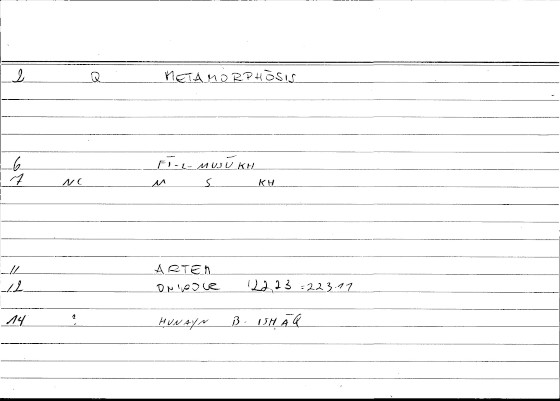 2 Q METAMORPHŌSIS
6 FĪ-L-MUSŪKH
7 NC M S KH
11 ARTEM
12 ONIROCR 122,23 = 223.11
14 : HUNAYN B. ISHĀQ